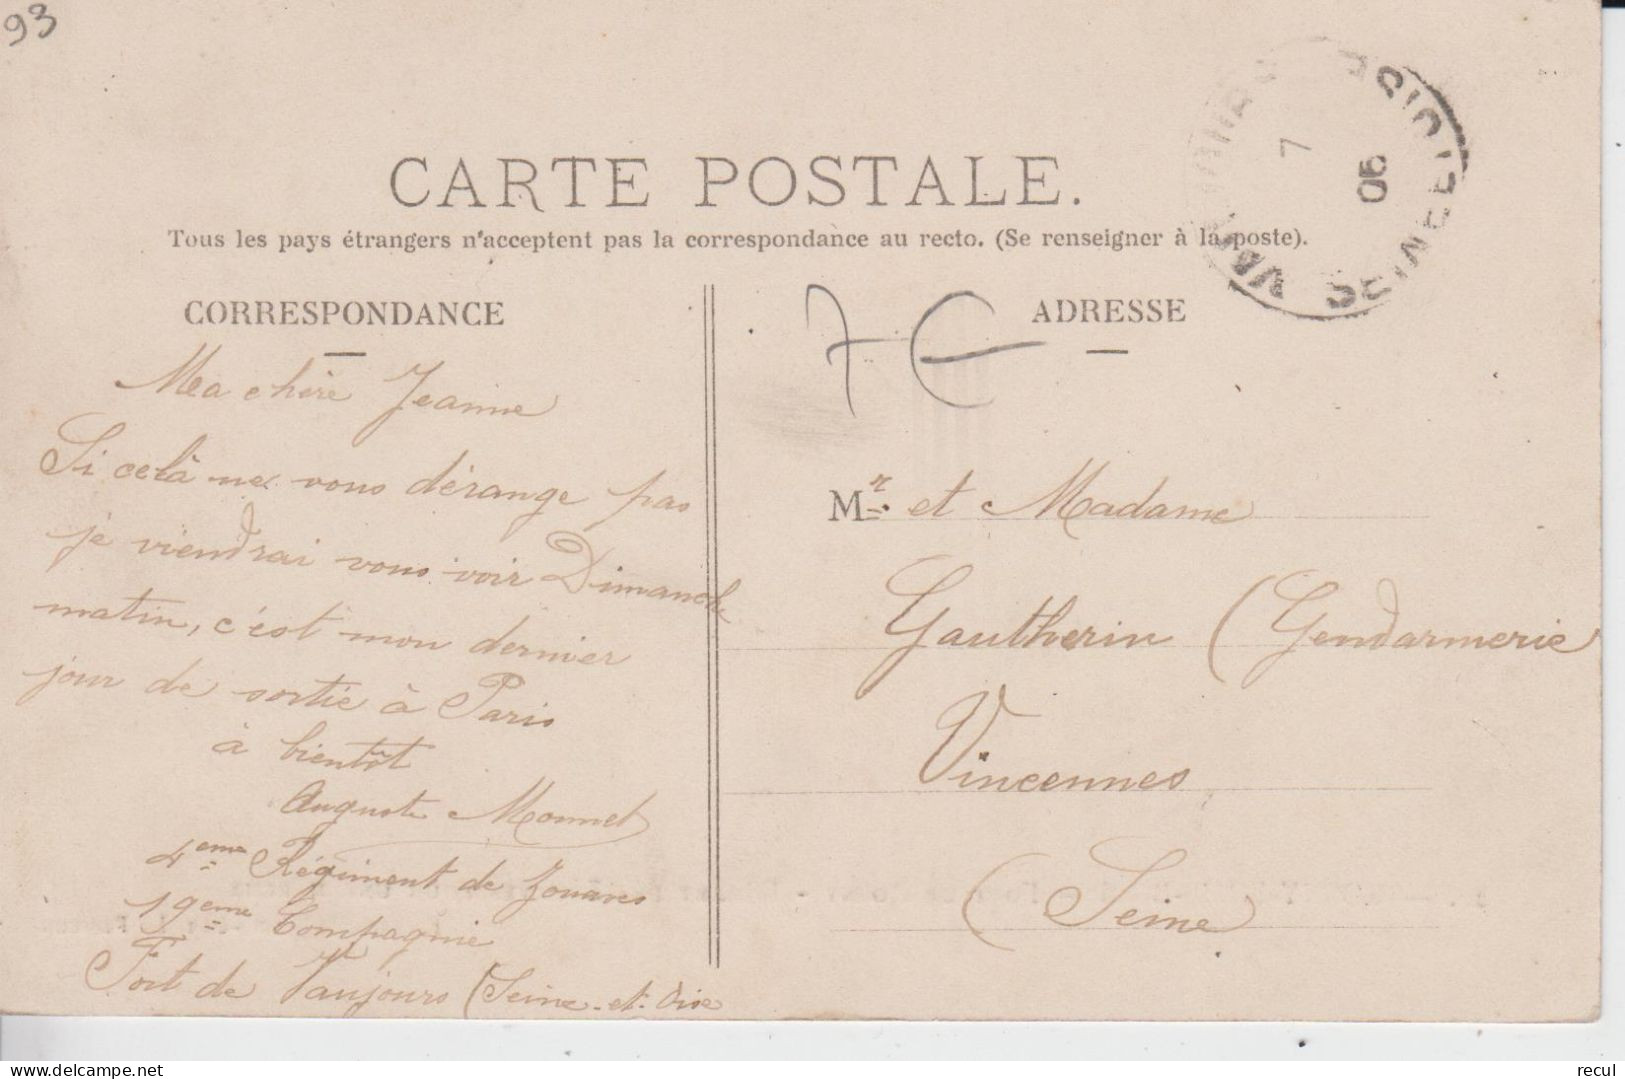 93
CARTE POSTALE.
Tous les pays étrangers n'acceptent pas la correspondance au recto. (Se renseigner à la poste).
CORRESPONDANCE
Ma chère Jeanne
Si celà ne vous dérange pas
je viendrai vous voir Dimanche
matin, c'est mon dernier
jour de sortie à Paris
à bientôt
Auguste Monnet
4eme Régiment de Zouaves
19eme Compagnie
Fort de Vaujours (Seine-et-Oise
7 €
ADRESSE
Mr. et Madame
Gautherin (Gendarmerie
Vincennes
(Seine)
7
06
SEINE
recul